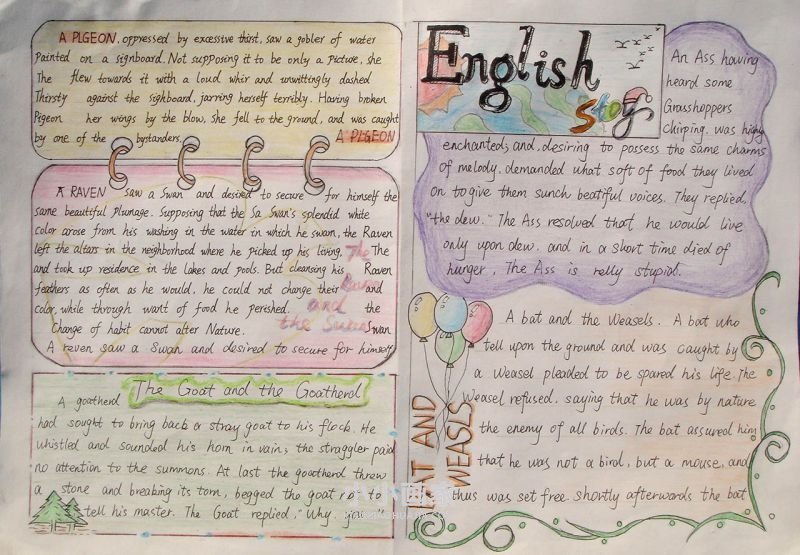 A PLGEON, oppressed by excessive thirst, saw a gobler of water
Painted on a signboard. Not supposing it to be only a Picture, she
The flew towards it with a loud whir and unwittingly dashed
Thirsty against the sighboard, jarring herself terribly. Having broken
Pegeon her wings by the blow, she fell to the ground, and was caught
by one of the bystanders.
A PLGEON
A RAVEN saw a Swan and desired to secure for himself the
same beautiful plumage. Supposing that the Sa Swan's splendid white
color arose from his washing in the water in which he swan, the Raven
left the altars in the neighborhood where he picked up his living. The
and took up residence in the lakes and pools. But cleansing his Raven
feathers as often as he would, he could not change their and
color, while through want of food he perished. the
Change of habit cannot alter Nature. Swan
A reven saw a Swan and desired to secure for himself
The
Raven
and
the Swan
The Goat and the Goatherd
A goatherd
had sought to bring back a stray goat to his flock. He
whistled and sounded his horn in vain; the straggler paid
no attention to the summons. At last the goatherd threw
a stone and breaking its torn, begged the goat
tell his master. The Goat replied, "Why,
English
story
An Ass having
heard some
Grasshoppers
chirping, was highly
enchanted; and, desiring to possess the same charms
of melody, demanded what soft of food they lived
on to give them sunch beatiful voices. They replied,
"the dew." The Ass resolved that he would live
only upon dew, and in a short time died of
hunger. The Ass is relly stupid.
A bat and the Weasels. A bat who
tell upon the ground and was caught by
a Weasel pleaded to be spared his life. The
Weasel refused, saying that he was by nature
the enemy of all birds. The bat assured him
that he was not a bird, but a mouse, and
thus was set free. Shortly afterwards the bat
BAT AND
WEASLS